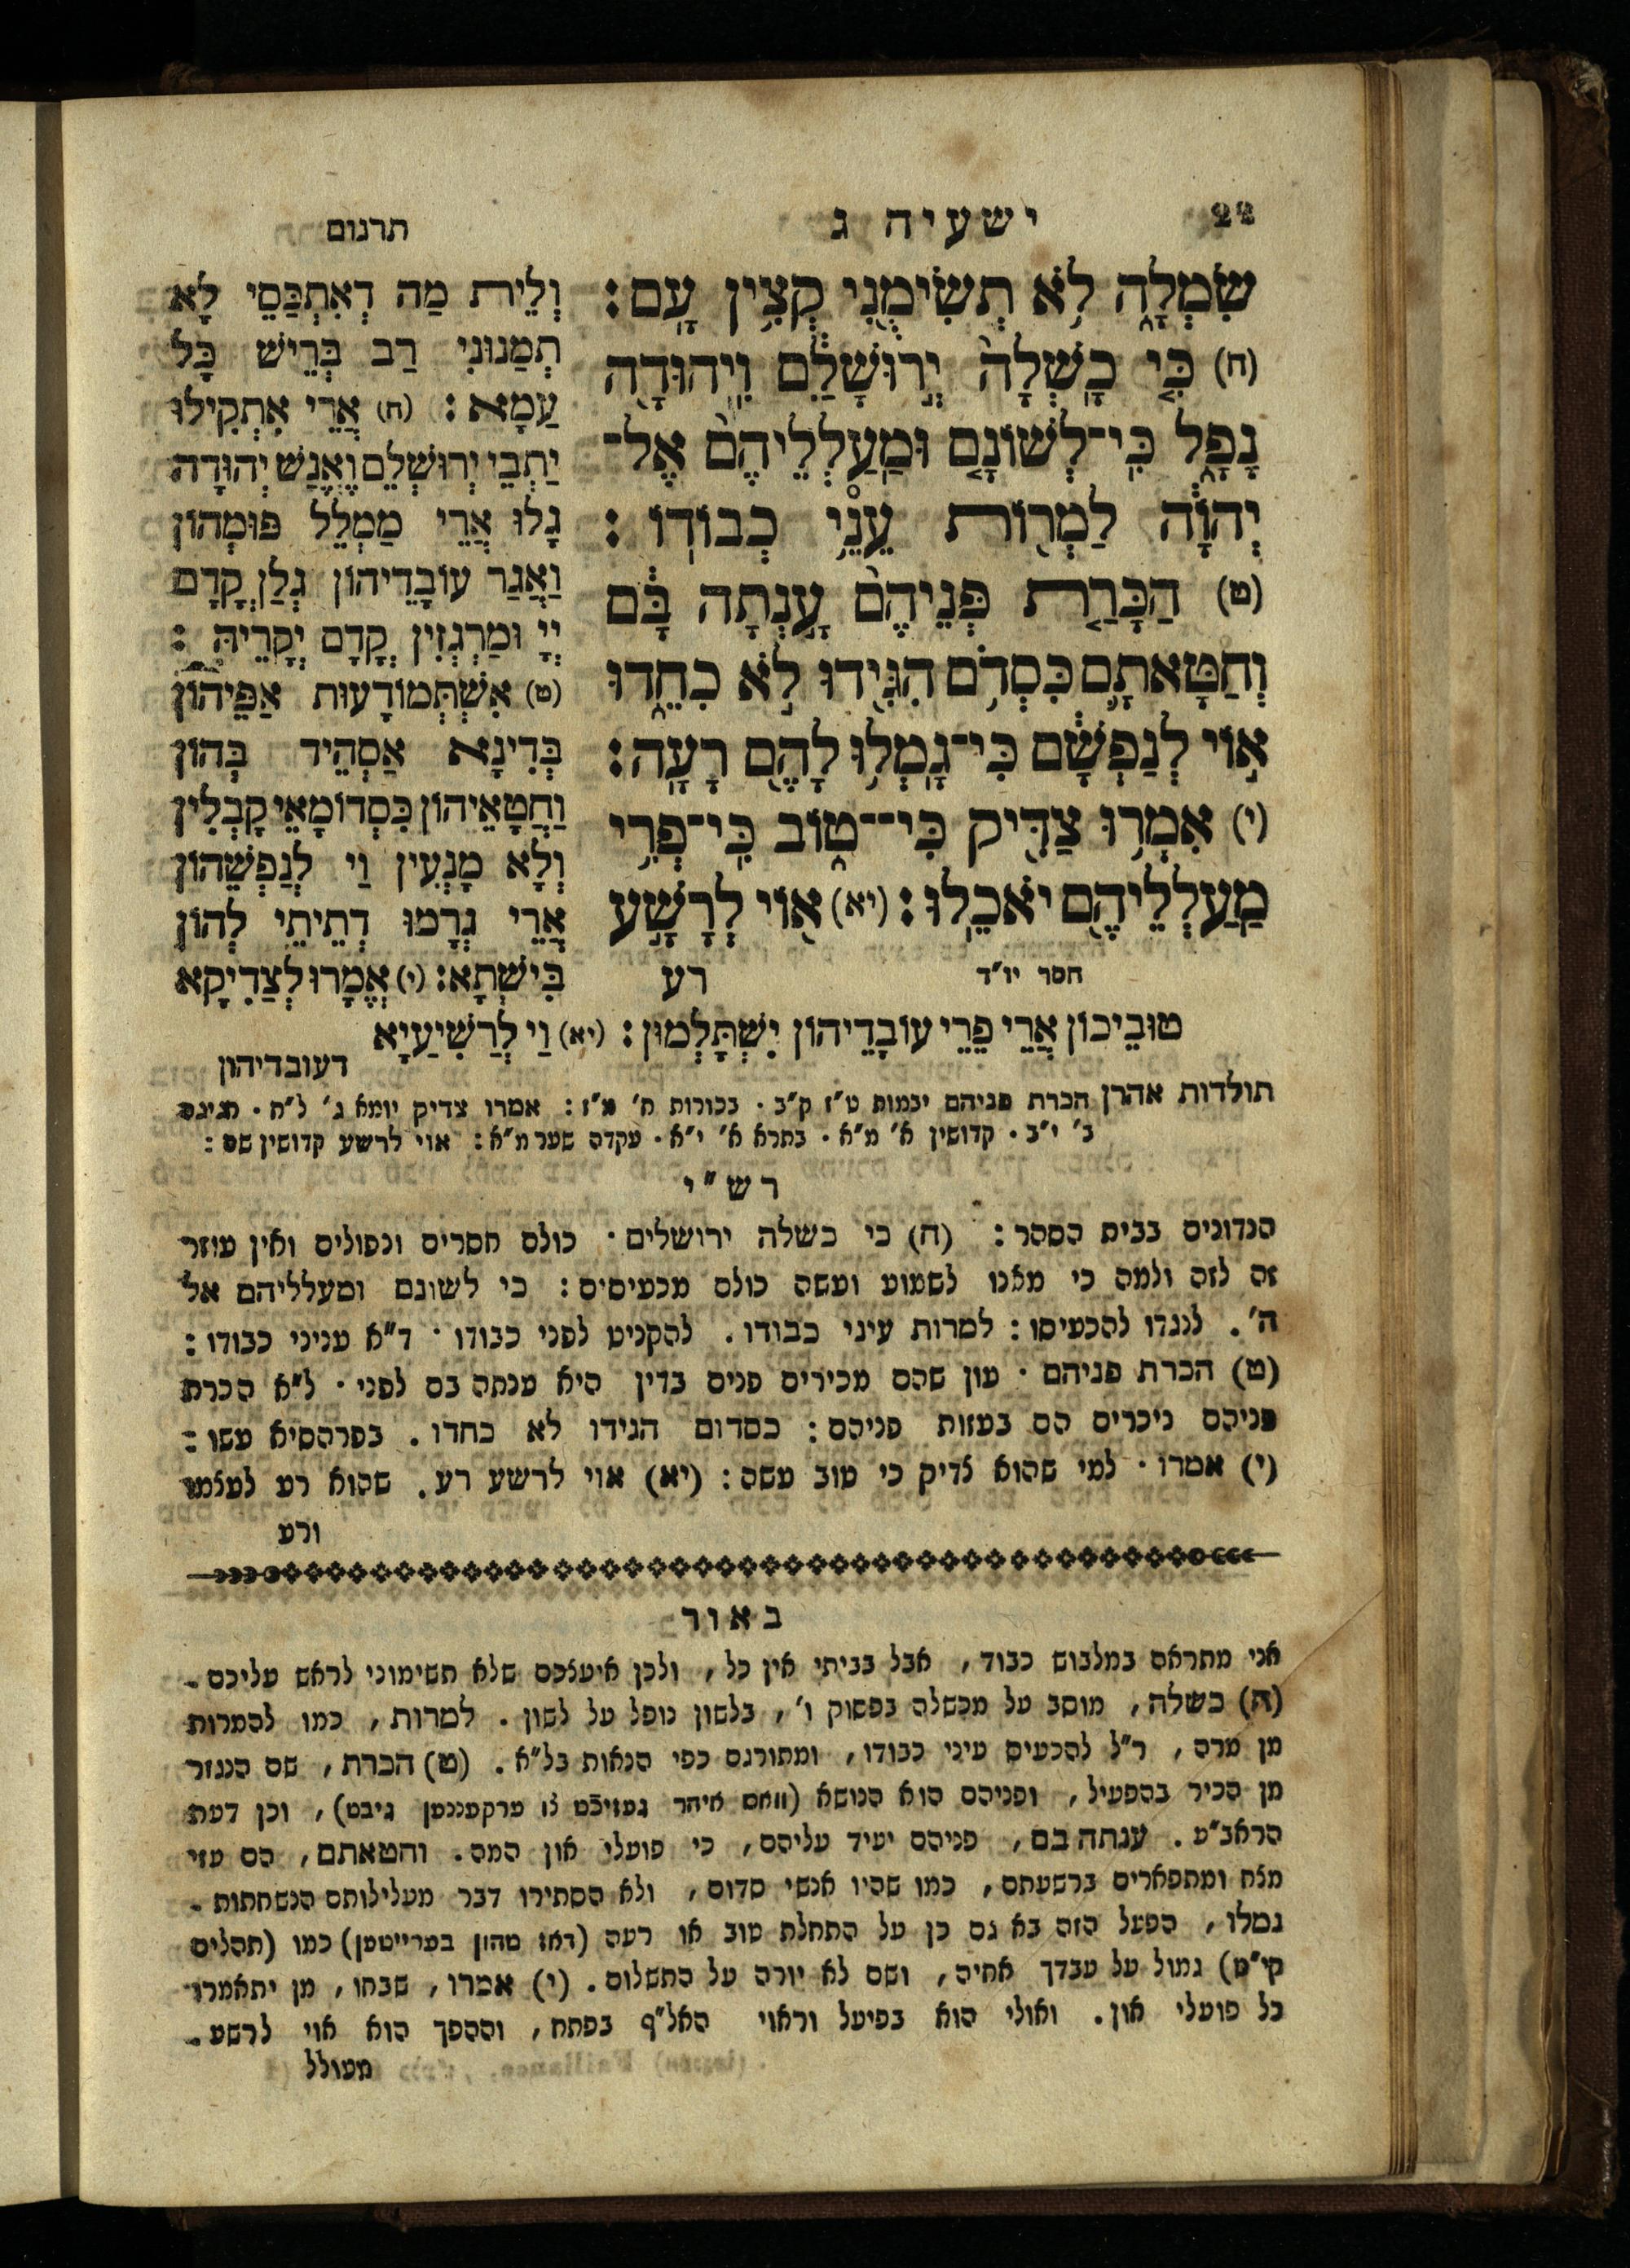 22
ישעיה ג
תרגום
שִׂמְלָ֑ה לֹ֥א תְשִׂימֻ֖נִי קְצִ֥ין עָֽם׃
(ח) כִּ֤י כָֽשְׁלָה֙ יְר֣וּשָׁלַ֔͏ִם וִֽיהוּדָ֖ה
נָפָ֑ל כִּֽי־לְשׁוֹנָ֤ם וּמַֽעַלְלֵיהֶם֙ אֶל־
יְהוָֹ֔ה לַמְר֖וֹת עֵנֵ֥י כְבוֹדֽוֹ׃
(ט) הַכָּרַ֤ת פְּנֵיהֶם֙ עָ֣נְתָה בָּ֔ם
וְחַטָּאתָ֛ם כִּסְדֹ֥ם הִגִּ֖ידוּ לֹ֣א כִחֵ֑דוּ
א֣וֹי לְנַפְשָׁ֔ם כִּי־גָֽמְל֥וּ לָהֶ֖ם רָעָֽה׃
(י) אִמְר֥וּ צַדִּ֖יק כִּי־ט֑וֹב כִּֽי־פְרִ֥י
מַֽעַלְלֵיהֶ֖ם יֹאכֵֽלוּ׃ (יא) א֖וֹי לְרָשָׁ֣ע
חסר יו״ד
רע
וְלֵית מַה דְאִתְכַּסֵי לָא
תְמַנוּנִי רַב בְּרֵישׁ כָּל
עַמָא׃ (ח) אֲרֵי אִתְקִילוּ
יַתְבֵי יְרוּשְׁלֵם וֶאֱנַשׁ יְהוּדָה
גָלוּ אֲרֵי מַמְלֵל פּוּמְהוֹן
וַאֲגַר עוֹבָדֵיהוֹן גְלַן קֳדָם
יְיָ וּמַרְגְזִין קֳדָם יְקָרֵיהּ׃
(ט) אִשְׁתְּמוֹדָעוּת אַפֵּיהוֹן
בְּדִינָא אַסְהֵיד בְּהוֹן
וַחֲטָאֵיהוֹן כִּסְדוֹמָאֵי קָבְלִין
וְלָא מָנְעִין וַי לְנַפְשֵׁהוֹן
אֲרֵי גְרָמוּ דְתֵיתֵי לְהוֹן
בִּישְׁתָא׃ (י) אֱמָרוּ לְצַדִיקָא
טוּבֵיכוֹן אֲרֵי פֵרֵי עוֹבָדֵיהוֹן יִשְׁתָּלְמוּן׃ (יא) וַי לְרַשִׁיעַיָא
דעובדיהון
תולדות אהרן הכרת פניהם יבמות ט״ז ק״ב. בכורות ח׳ מ״ז: אמרו צדיק יומא ג׳ ל״ח. חגיגה
ב׳ י״ב. קדושין א׳ מ״א. בתרא א׳ י״א. עקדה שער מ״א: אוי לרשע קדושין שם:
רש״י
הנדונים בבית הסהר: (ח) כי כשלה ירושלים. כולם חסרים ונפולים ואין עוזר
זה לזה ולמה כי מאנו לשמוע ועשה כולם מכעיסים: כי לשונם ומעלליהם אל
ה׳. לנגדו להכעיסו: למרות עיני כבודו. להקניט לפני כבודו. ד״א ענייני כבודו:
(ט) הכרת פניהם. עון שהם מכירים פנים בדין היא ענתה בם לפני. ל״א הכרת
פניהם ניכרים הם בעזות פניהם: כסדום הגידו לא כחדו. בפרהסיא עשו:
(י) אמרו. למי שהוא צדיק כי טוב עשה: (יא) אוי לרשע רע. שהוא רע לעצמו
ורע
באור
אני מתראם במלבוש כבוד, אבל בביתי אין כל, ולכן איעצכם שלא תשימוני לראש עליכם.
(ח) כשלה, מוסב על מכשלה בפסוק ו׳, בלשון נופל על לשון. למרות, כמו להמרות
מן מרה, ר״ל להכעיס עיני כבודו, ומתורגם כפי הנאות בל״א. (ט) הכרת, שם הנגזר
מן הכיר בהפעיל, ופניהם הוא הנושא (וואס איהר געזיכט צו ערקעננען גיבט), וכן דעת
הראב״ע. ענתה בם, פניהם יעיד עליהם, כי פועלי און המה. וחטאתם, הם עזי
מצח ומתפארים ברשעתם, כמו שהיו אנשי סדום, ולא הסתירו דבר מעלילותם הנשחתות.
גמלו, הפעל הזה בא גם כן על התחלת טוב או רעה (דאז טהון בערייטען) כמו (תהלים
קי״ט) גמול על עבדך אחיה, ושם לא יורה על התשלום. (י) אמרו, שבחו, מן יתאמרו
כל פועלי און. ואולי הוא בפיעל וראוי האל״ף בפתח, וההפך הוא אוי לרשע.
מעולל